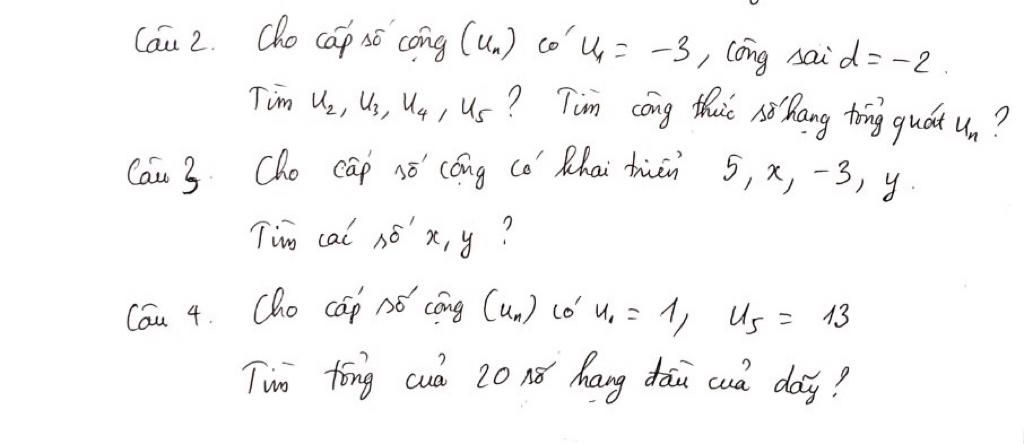 Câu 2. Cho cấp số cộng (uₙ) có u₁ = -3, công sai d = -2.
Tìm u₂, u₃, u₄, u₅? Tìm công thức số hạng tổng quát uₙ?
Câu 3. Cho cấp số cộng có khai triển 5, x, -3, y.
Tìm các số x, y?
Câu 4. Cho cấp số cộng (uₙ) có u₁ = 1, u₅ = 13
Tìm tổng của 20 số hạng đầu của dãy?